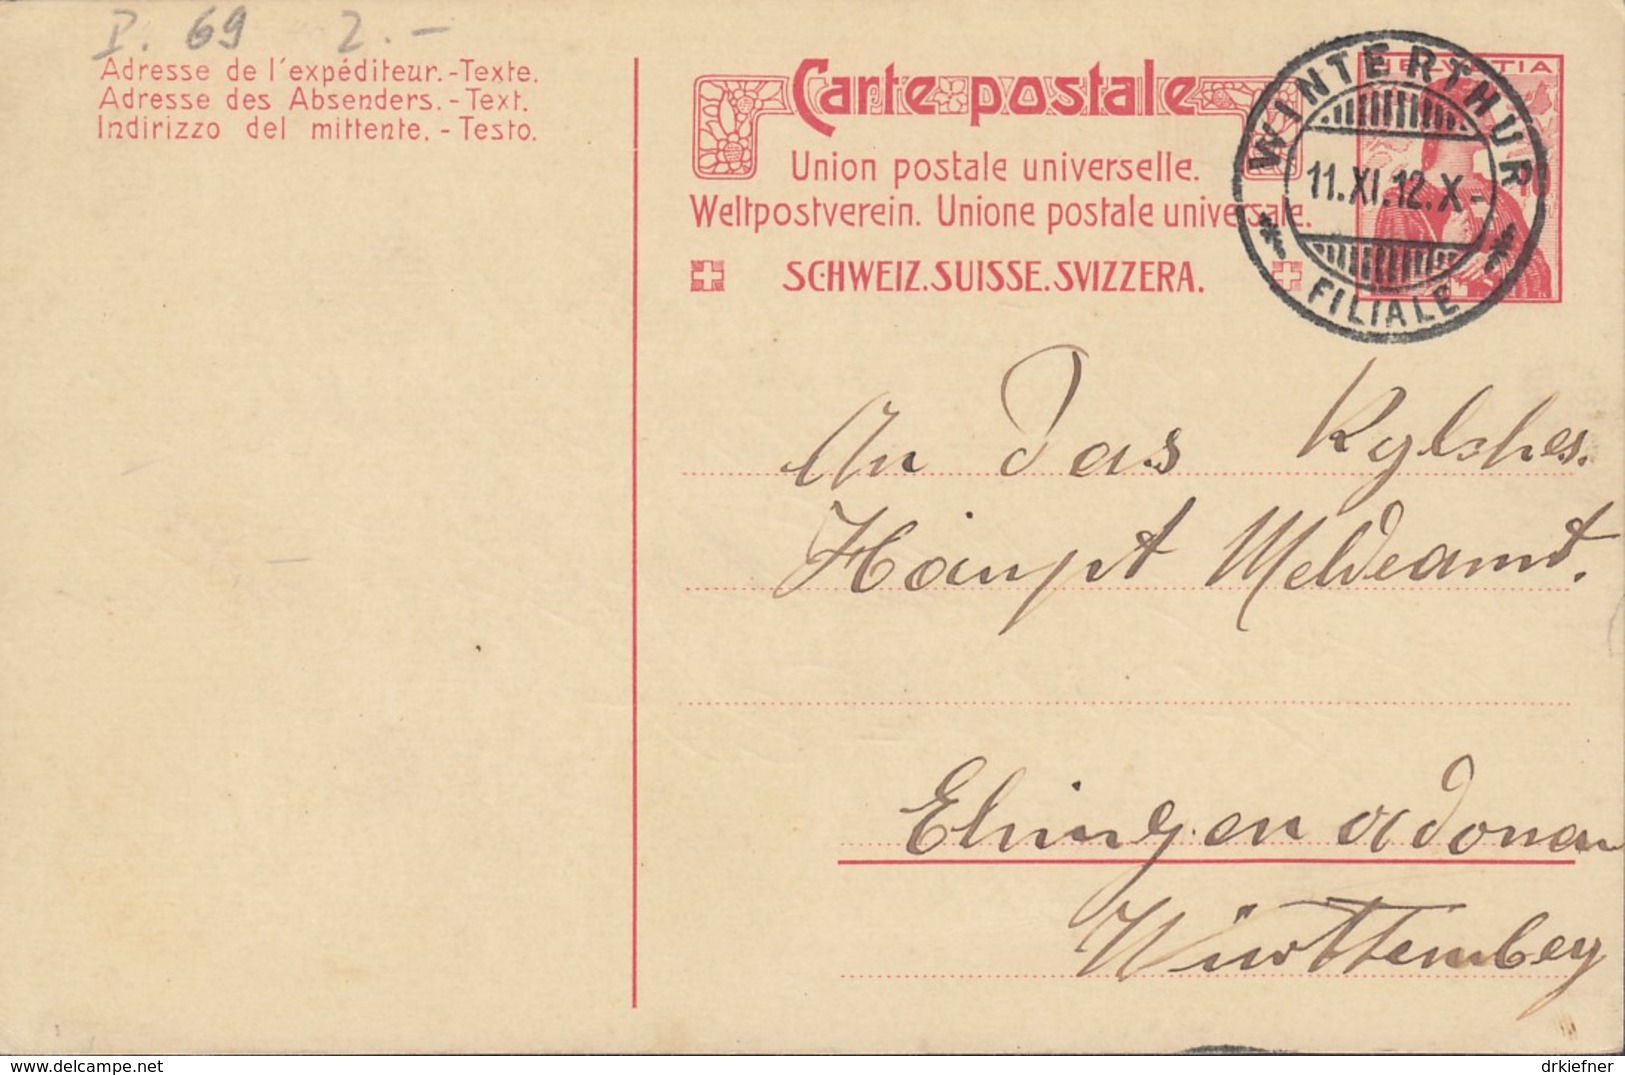 P. 69 2.-
Adresse de l'expéditeur.-Texte.
Adresse des Absenders.-Text.
Indirizzo del mittente.-Testo.
Carte postale
Union postale universelle.
Weltpostverein. Unione postale universale.
SCHWEIZ.SUISSE.SVIZZERA.
HELVETIA
WINTERTHUR
11.XI.12.X-
FILIALE
An das
Haupt Meldeamt.
Ehingen a/donau
Württemberg
delcampe.net
drkiefner